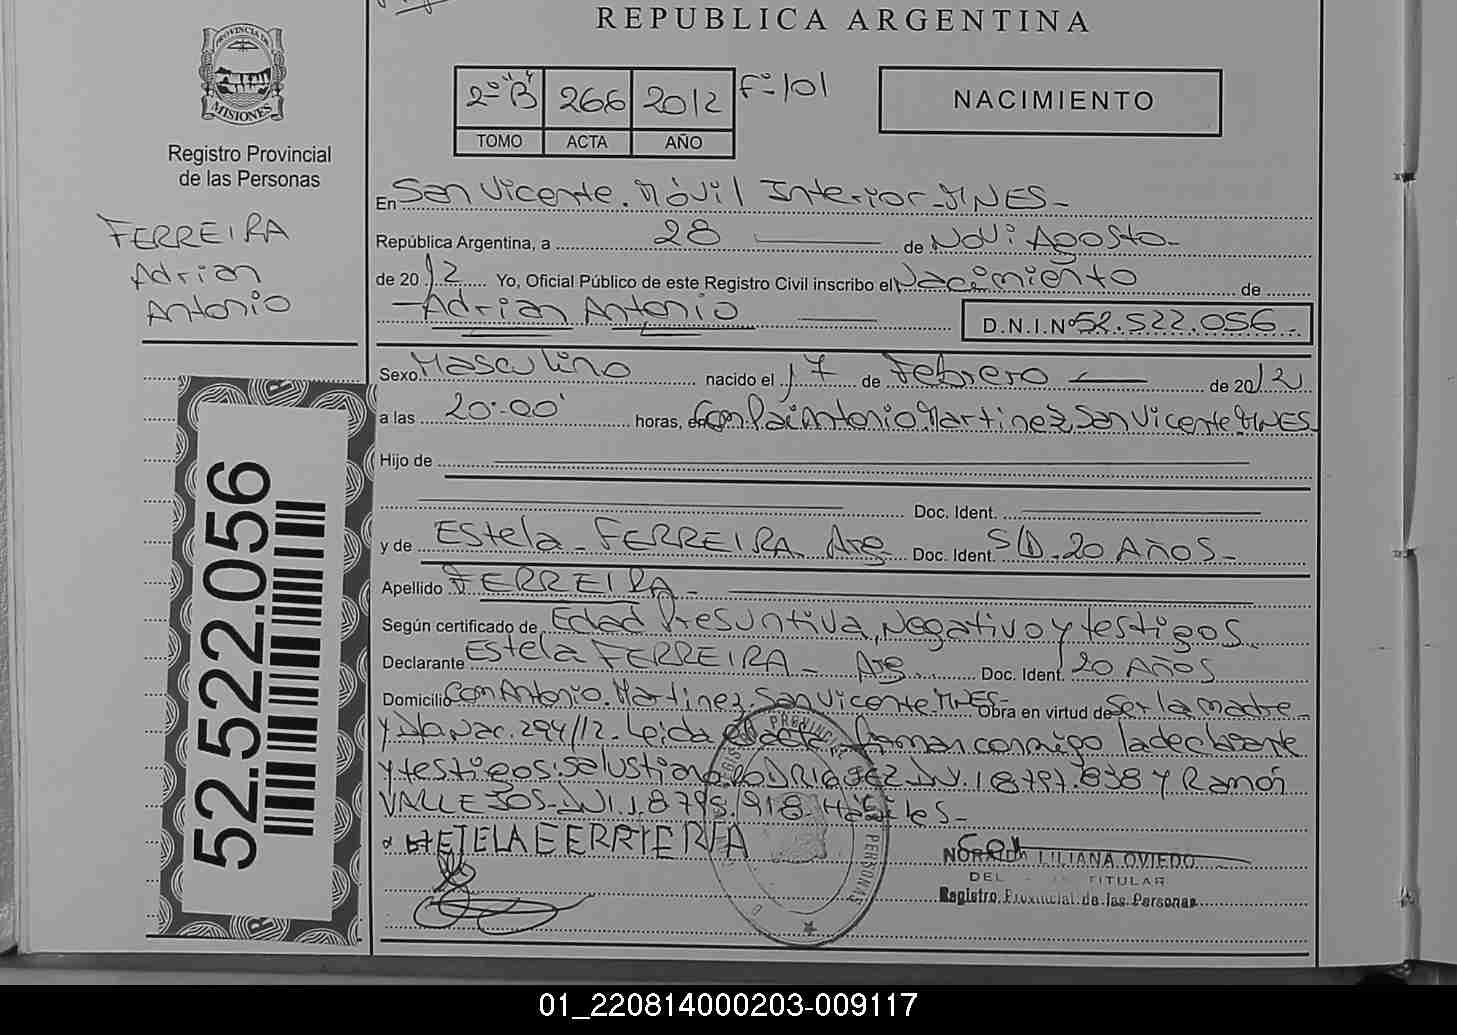 REPUBLICA ARGENTINA
PROVINCIA DE MISIONES
Registro Provincial
de las Personas
2º "B" 266 2012 Fº 101
TOMO ACTA AÑO
NACIMIENTO
FERREIRA
Adrian
Antonio
En San Vicente. Móvil Interior - MNES -
República Argentina, a 28 de Agosto -
de 2012 Yo, Oficial Público de este Registro Civil inscribo el Nacimiento de
- Adrian Antonio
D.N.I.Nº 52.522.056 -
Sexo Masculino nacido el 17 de Febrero de 2012
a las 20:00' horas, en Antonio Martinez, San Vicente MNES
Hijo de
Doc. Ident.
y de Estela - FERREIRA Arg Doc. Ident. S/D - 20 AÑOS -
Apellido FERREIRA -
Según certificado de Edad Presuntiva, Negativo y testigos
Declarante Estela FERREIRA - Arg Doc. Ident. 20 AÑOS
Domicilio Antonio Martinez. San Vicente MNES - Obra en virtud de ser la madre -
y Nac. 294/12. Leida el acta firman conmigo la declarante
y testigos: Selustiano RODRIGUEZ DNI. 18.797.838 y Ramón
VALLEJOS - DNI. 18.795.918. Hábiles -
NORMA LILIANA OVIEDO
TITULAR
Registro Provincial de las Personas
52.522.056
01_220814000203-009117